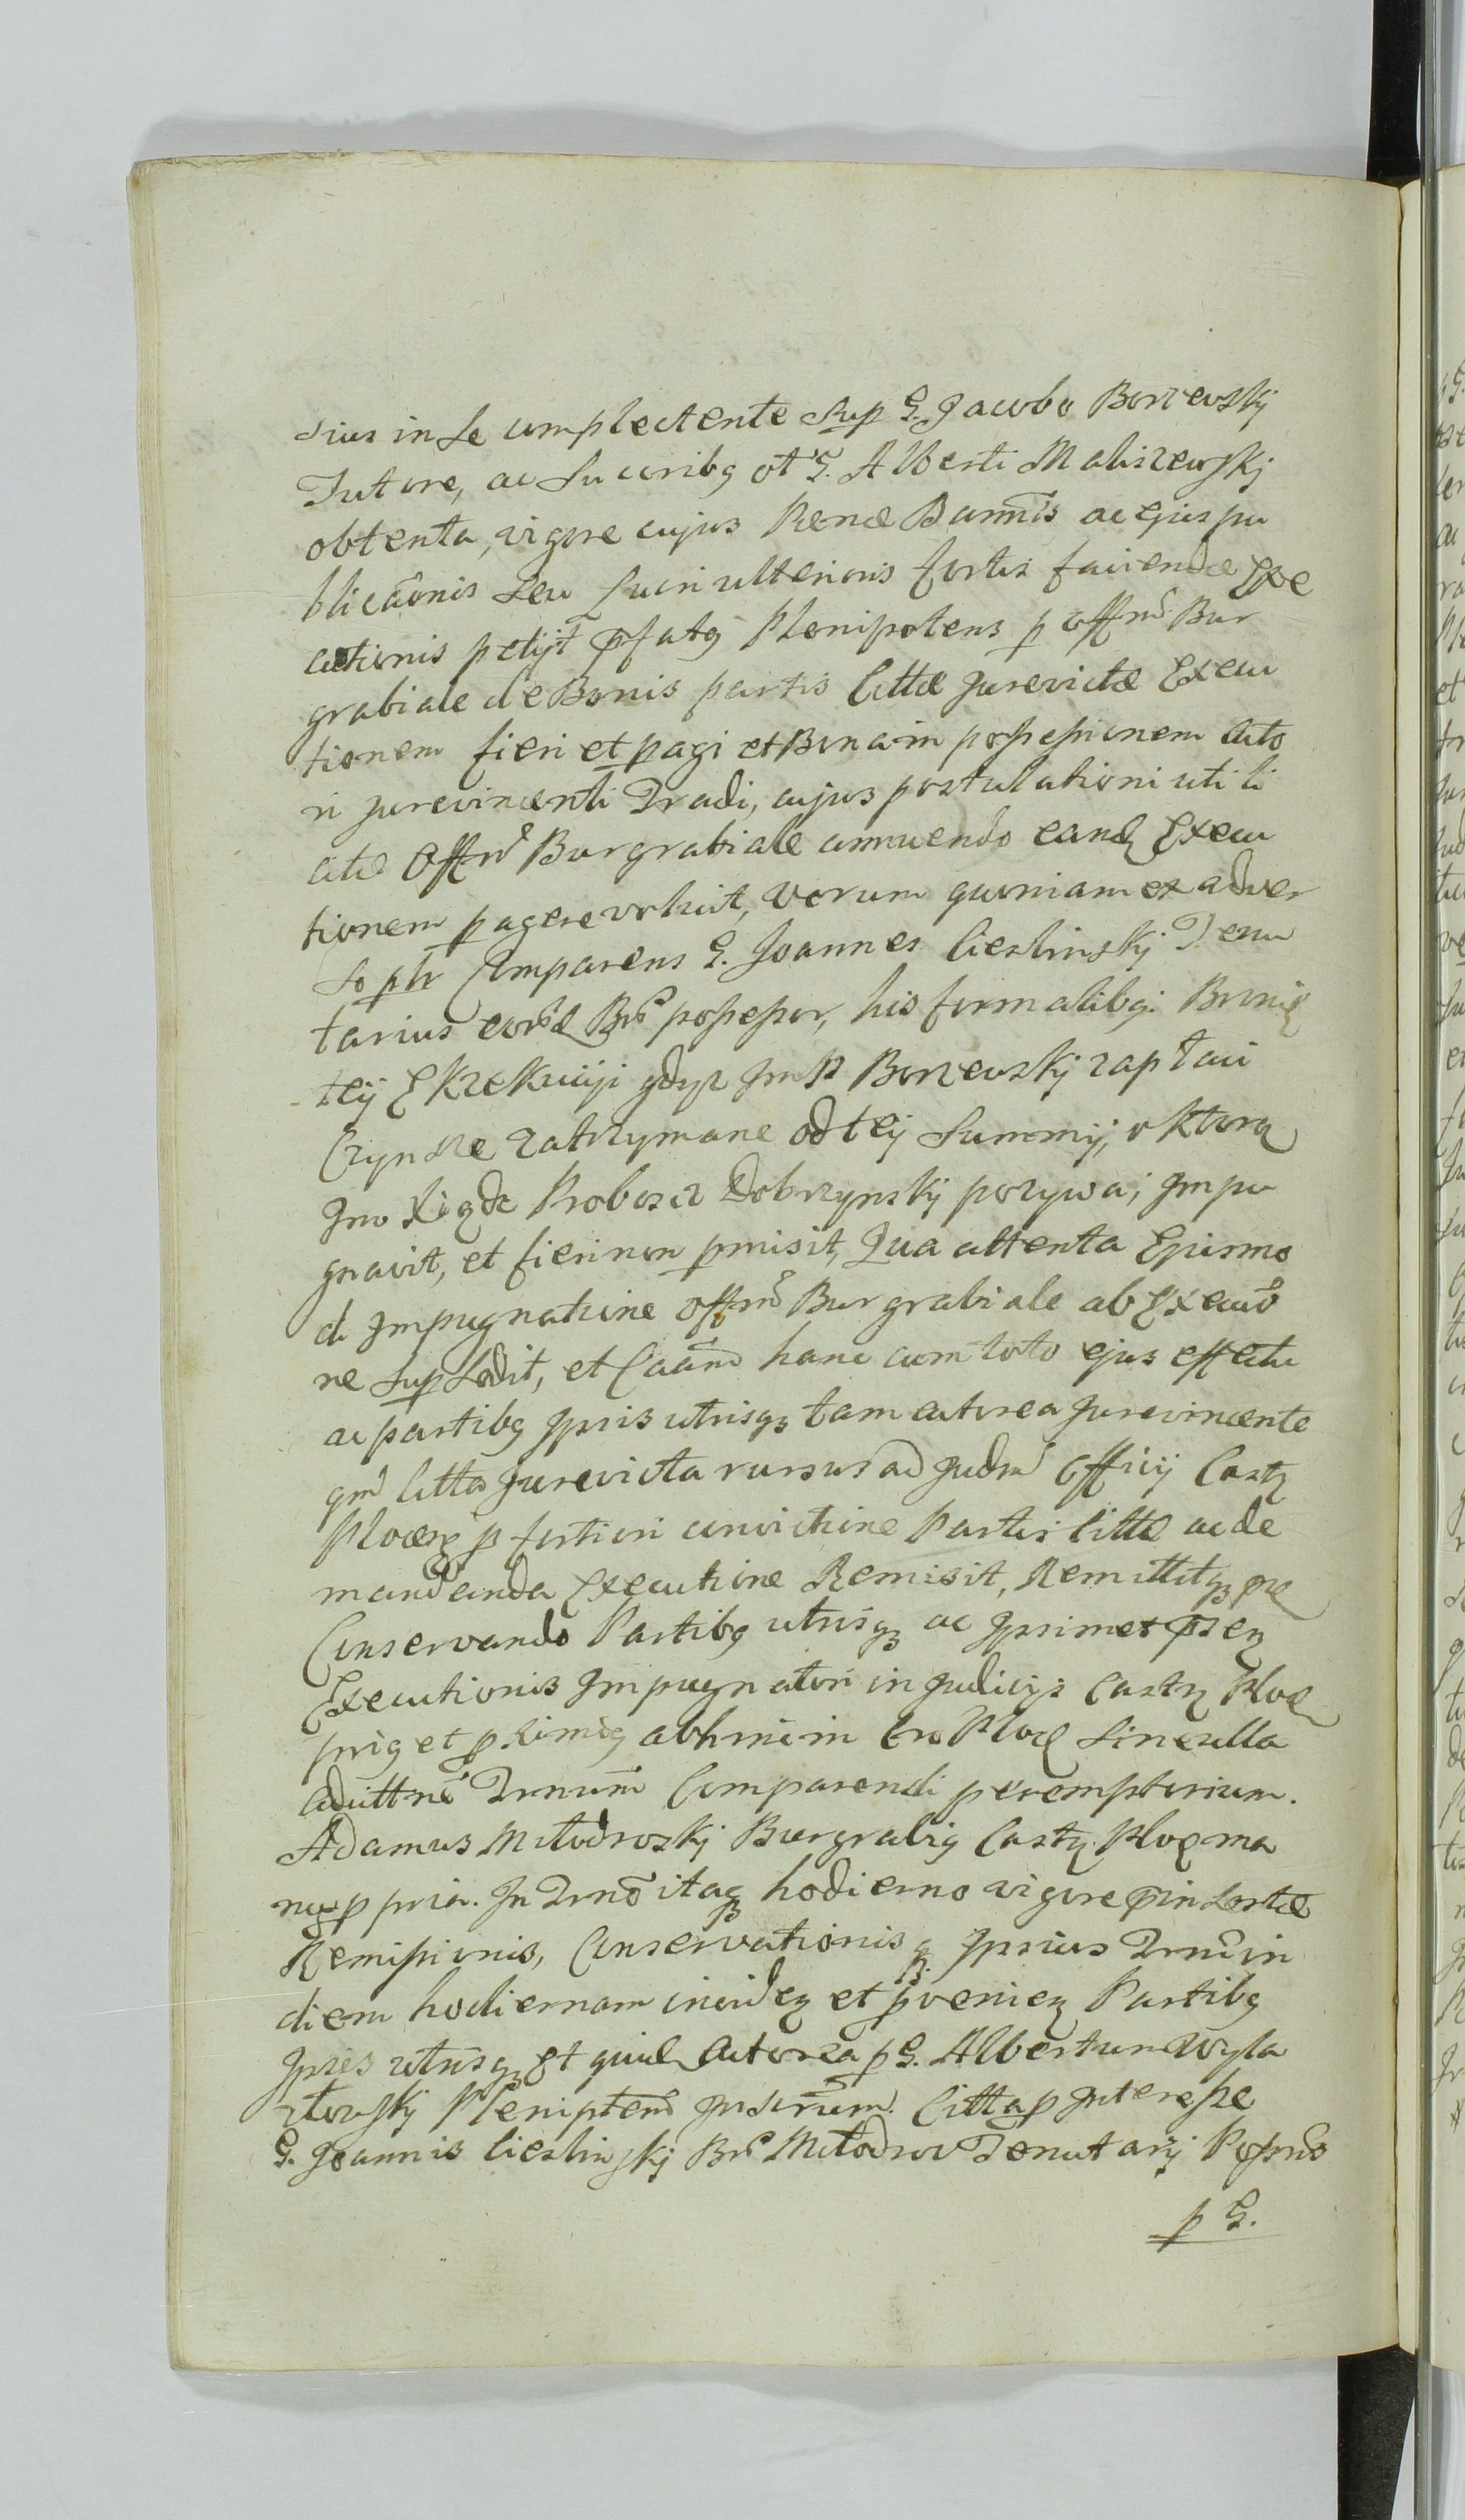 sius in se complectente sup G. Jacobo Borzewskj
Tutore, ac Sucoribg ol G. Alberti Maliszewskj
obtenta, vigore cujus Penæ Banñis ac ejus pu
blicãonis seu Lucri ulterioris fortis faciendæ Exe
cutionis petijt p̃fatg Plenipotens p offm̃ Bur
grabiale de Bonis partis Cittæ Jurevictæ Execu
tionem fieri et pagi et Bona in possessionem Acto
ri Jurevincenti Tradi, cujus postulationi uti li
citæ Offm̃ Burgrabiale annuendo eand Execu
tionem pagere voluit, Verum quoniam ex adver
so ptr Comparens G. Joannes Cieslinskj Tenu
tarius eord Brũ possessor, his formalibg. Bronię
tey Exekucyi gdyż Jm P Borzewskj zapłaci
Czynsze zatrzymane od tey Summy, o ktorą
Jm Xiądz Proboscz Dobrzynskj pozywa; Impu
gnavit, et fieri non pmisit, Qua attenta Ejusmo
di Impugnatione offm̃ Burgrabiale ab Execuõ
ne supsedit, et Cãam hanc cum toto ejus effectu
ac partibg Ipsis utrisqz tam actorea Jurevincente
qm̃ Citta Jurevicta rursus ad Judm̃ Officij Castr
Plocen p fortiori convictione Partis Cittæ ac de
mandanda Executione Remisit, Remittitqz pñ
Conservando Partibg utrisqz ac Ipsimet p̃sen
Executionis Impugnatori in Judicijs Castr Ploc
prig et p ximig abhinc in Cro Ploc sine ulla
adcittnẽ Trnum Comparendi peremptorium.
Adamus Młodroskj Burgrabig Castr. Ploc ma
nu p pria. In Trnõ itaqz hodierno vigore p̃insertæ
Remissionis, Conservationisqz Ipsius Trnĩ in
diem hodiernam inciden et pvenien Partibg
Ipsis utrisqz Et quid Actorea p G. Albertum Wyla
złowskj Plenipten̄ Inscrum. Citta p Interesse
G. Joannis Cieslinskj Brũ Młodrow Tenutarij Possris
p G.